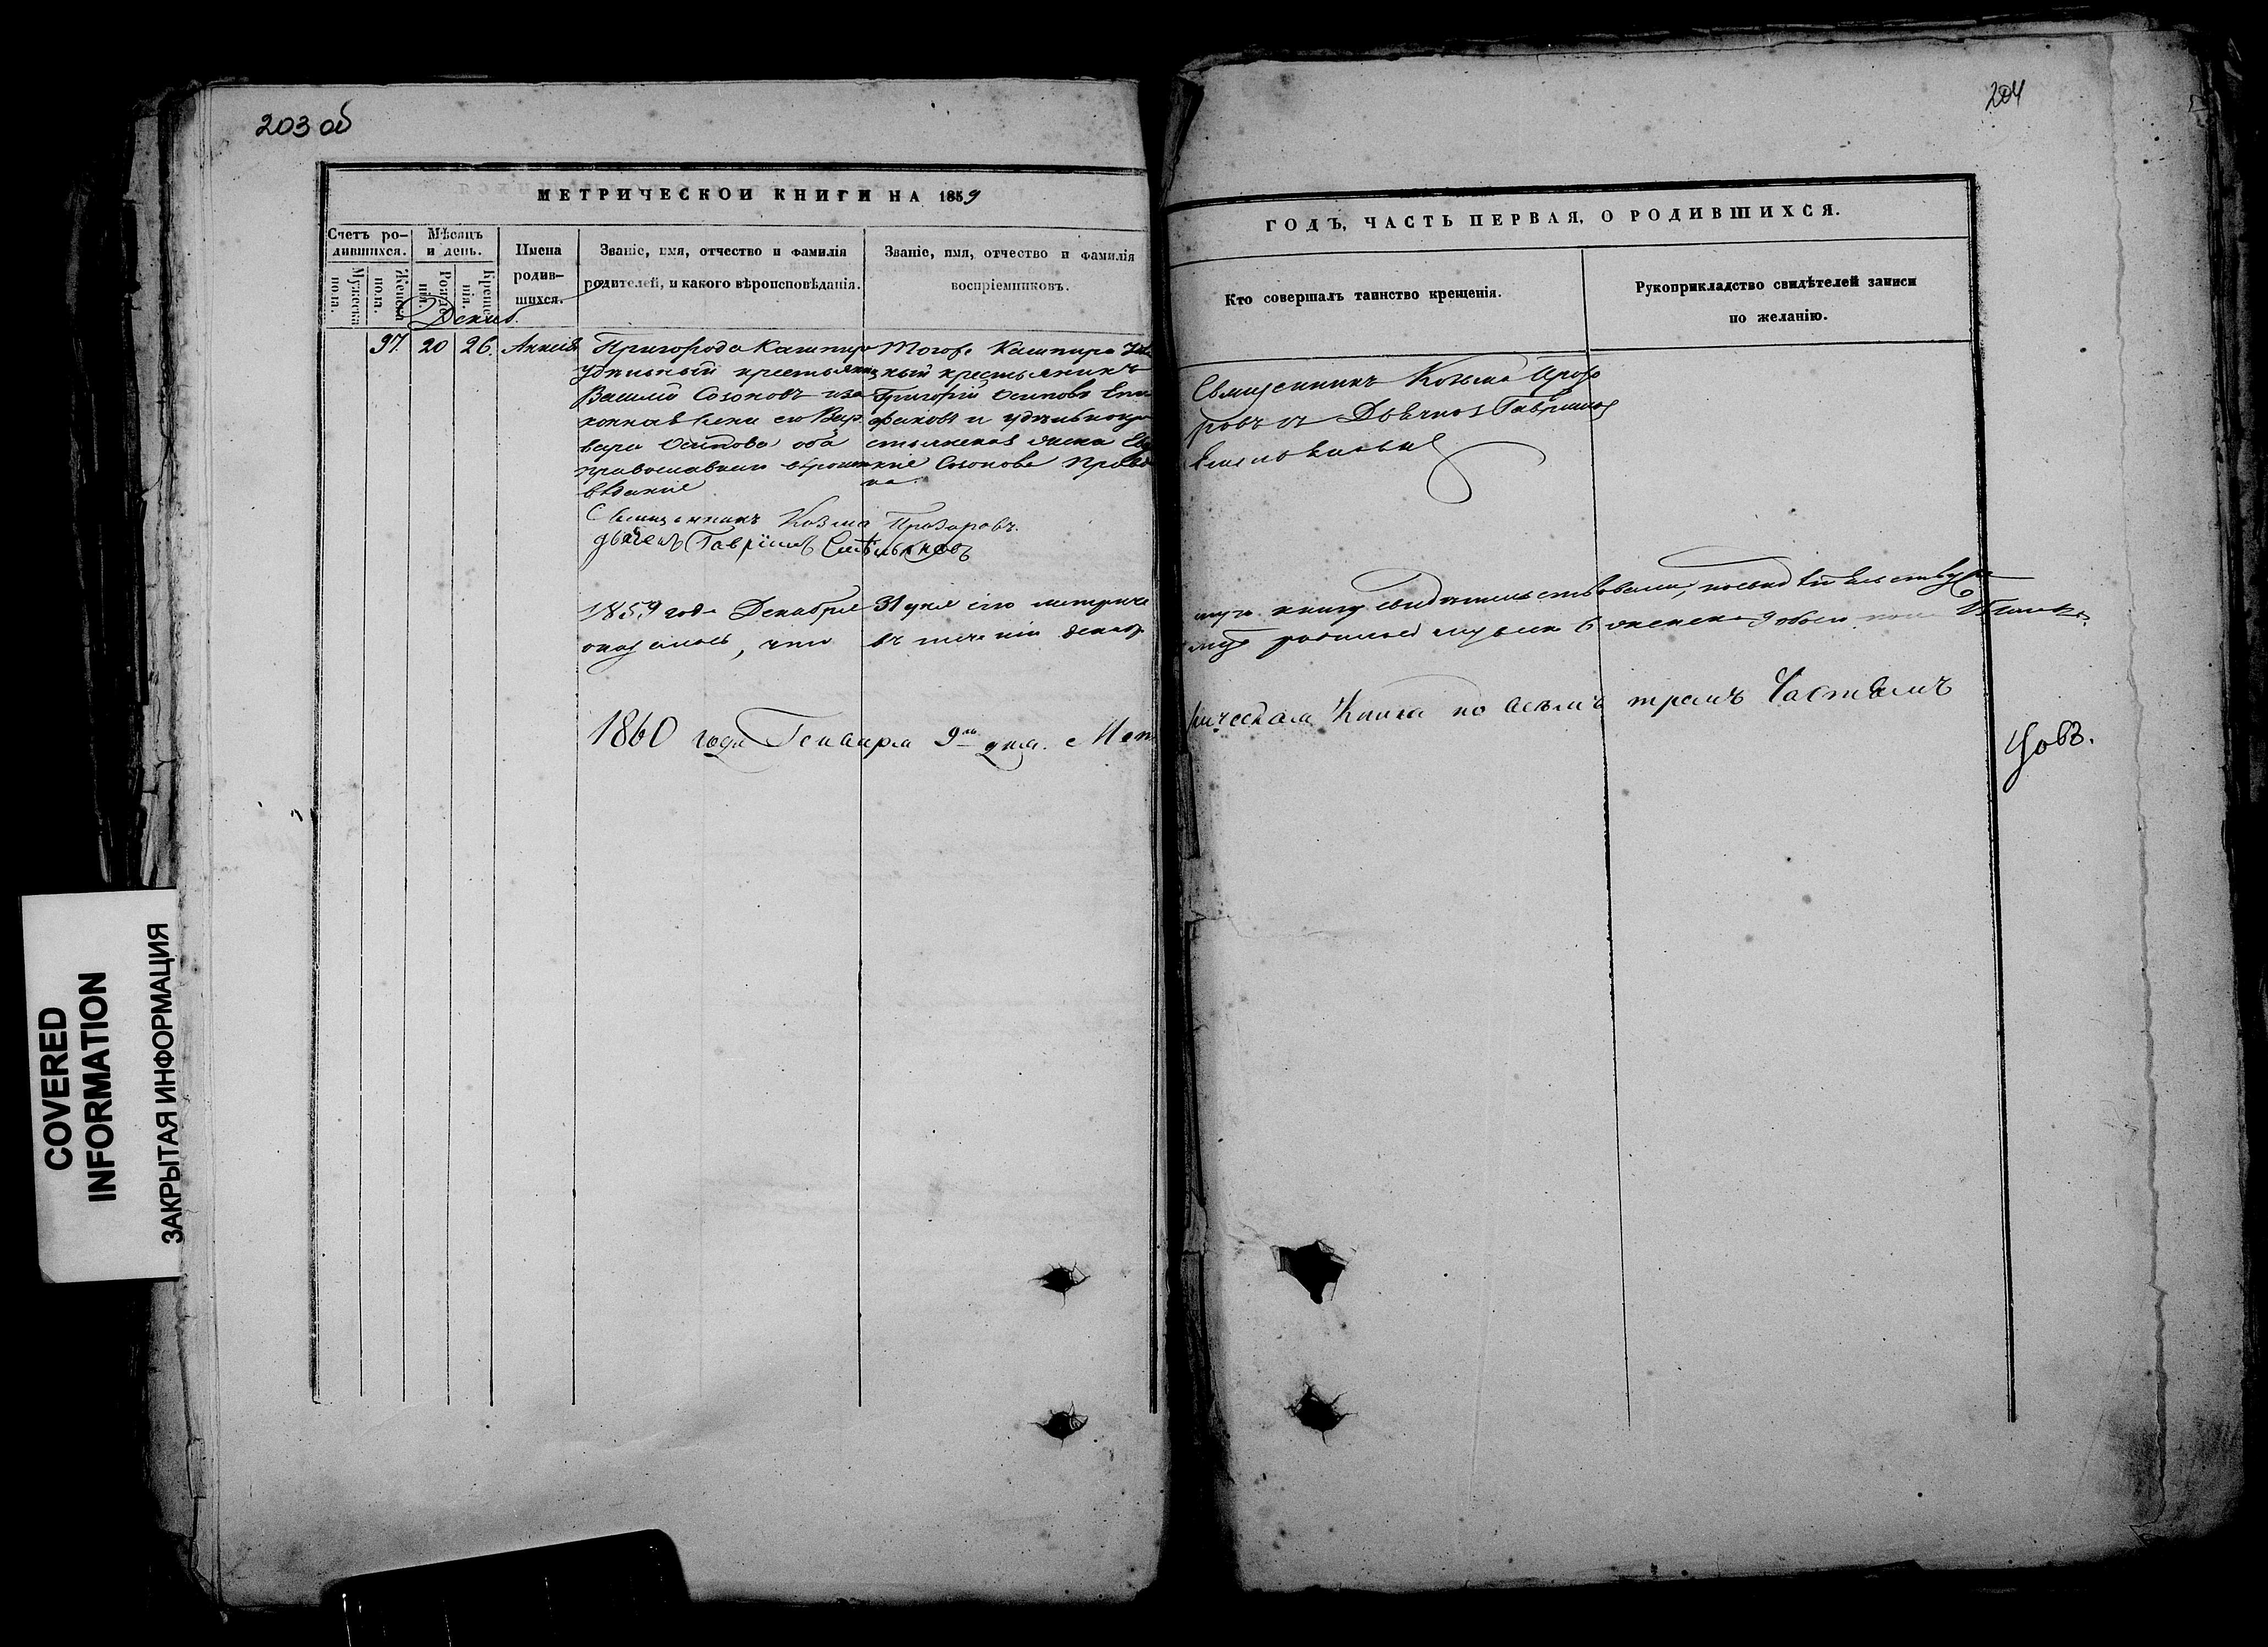 203 об
204
МЕТРИЧЕСКОЙ КНИГИ НА 1859
ГОДЪ, ЧАСТЬ ПЕРВАЯ, О РОДИВШИХСЯ.
Счетъ ро-
дившихся.
Мужеска
пола.
Женска
пола.
Мѣсяцъ
и день.
Рожде-
нія.
Креще-
нія.
Имена
родив-
шихся.
Званіе, имя, отчество и фамилія
родителей, и какого вѣроисповѣданія.
Званіе, имя, отчество и фамилія
воспріемниковъ.
Кто совершалъ таинство крещенія.
Рукоприкладство свидѣтелей записи
по желанію.
Декаб.
97. 20 26.
Пригорода Кашпира
удѣльный крестьянинъ
Василій Созоновъ и за
конная жена его Вар
вара Осипова оба
православнаго вѣроиспо
вѣданія
Тогожъ Кашпира
ный крестьянинъ
Григорій Осиповъ Епи
фановъ и удѣльная
стьянская жена
Созонова
Священникъ Козьма Прозо
ровъ съ Дьячкомъ Гавриилом
Священникъ Козма Прозоровъ.
дьячекъ Гавріилъ
1859 года Декабря 31 дня сію метриче
скую книгу свидѣтельствовали, по свидѣтельству
оказалось, что въ теченіи декабр
родилось мужеска 6 женска 9 обоего
1860 года Генваря 9го дня. Мет
рическая Книга по всѣмъ тремъ Частямъ